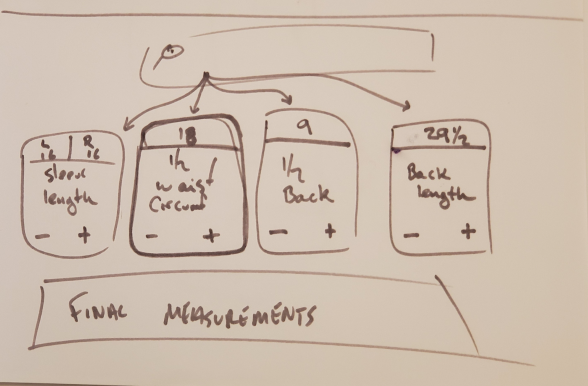 L | R
16 | 16
Sleeve
length
- +
18
1/2
waist
Circum
- +
9
1/2
Back
- +
29 1/2
Back
length
- +
FINAL MEASUREMENTS